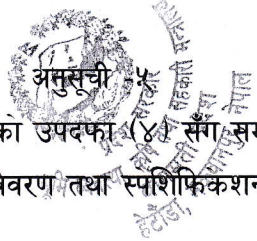 अनुसूची -५
को उपदफा (४) सँग सम
विवरण तथा स्पेशिफिकेशन
हेटौंडा, नेपाल